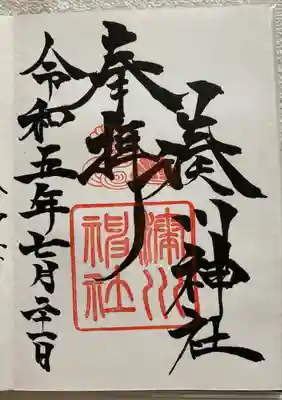 奉拝
湊川神社
令和五年七月二十一日
湊川
神社